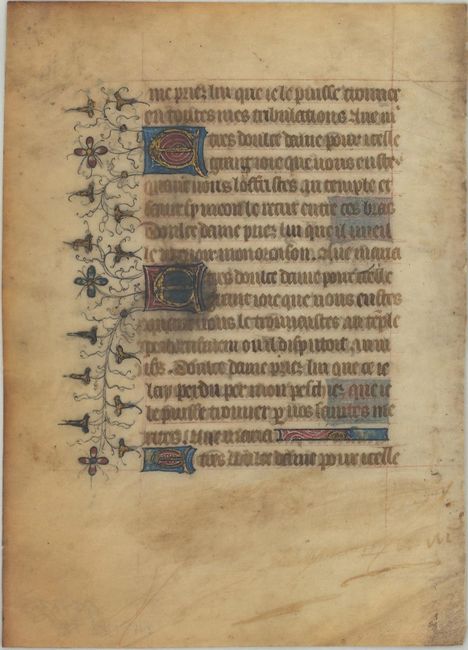 me priez lui que ie le puisse trouuer
en toutes mes tribulacions Aue m
E tres doulce dame pour icelle
grant ioie que vous eustes
quant vous loffristes au temple et
saint symeon le recut entre ces bras
Doulce dame priez lui que il vueil
le receuoir mon oroison. Aue maria
E tres doulce dame pour icelle
grant ioie que vous eustes
quant vous le trouuastes au temple
ou il disputoit
Doulce dame priez lui que ce ie
lay perdu par mon pechiez que ie
le puisse trouuer p vos saintes me
rites. Aue maria
E tres doulce dame pour icelle